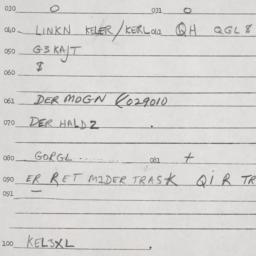 030 O 031 O
040 LINKN KELER/KERL 041 QH QGL8
050 G3KAJT
$
060
061 DERMOGN (029010
070 DER HALDZ .
080 GORGL ........ 081 +
090 ER RET MIDERTRASK QiR TR
091 –
100 KEL3XL .